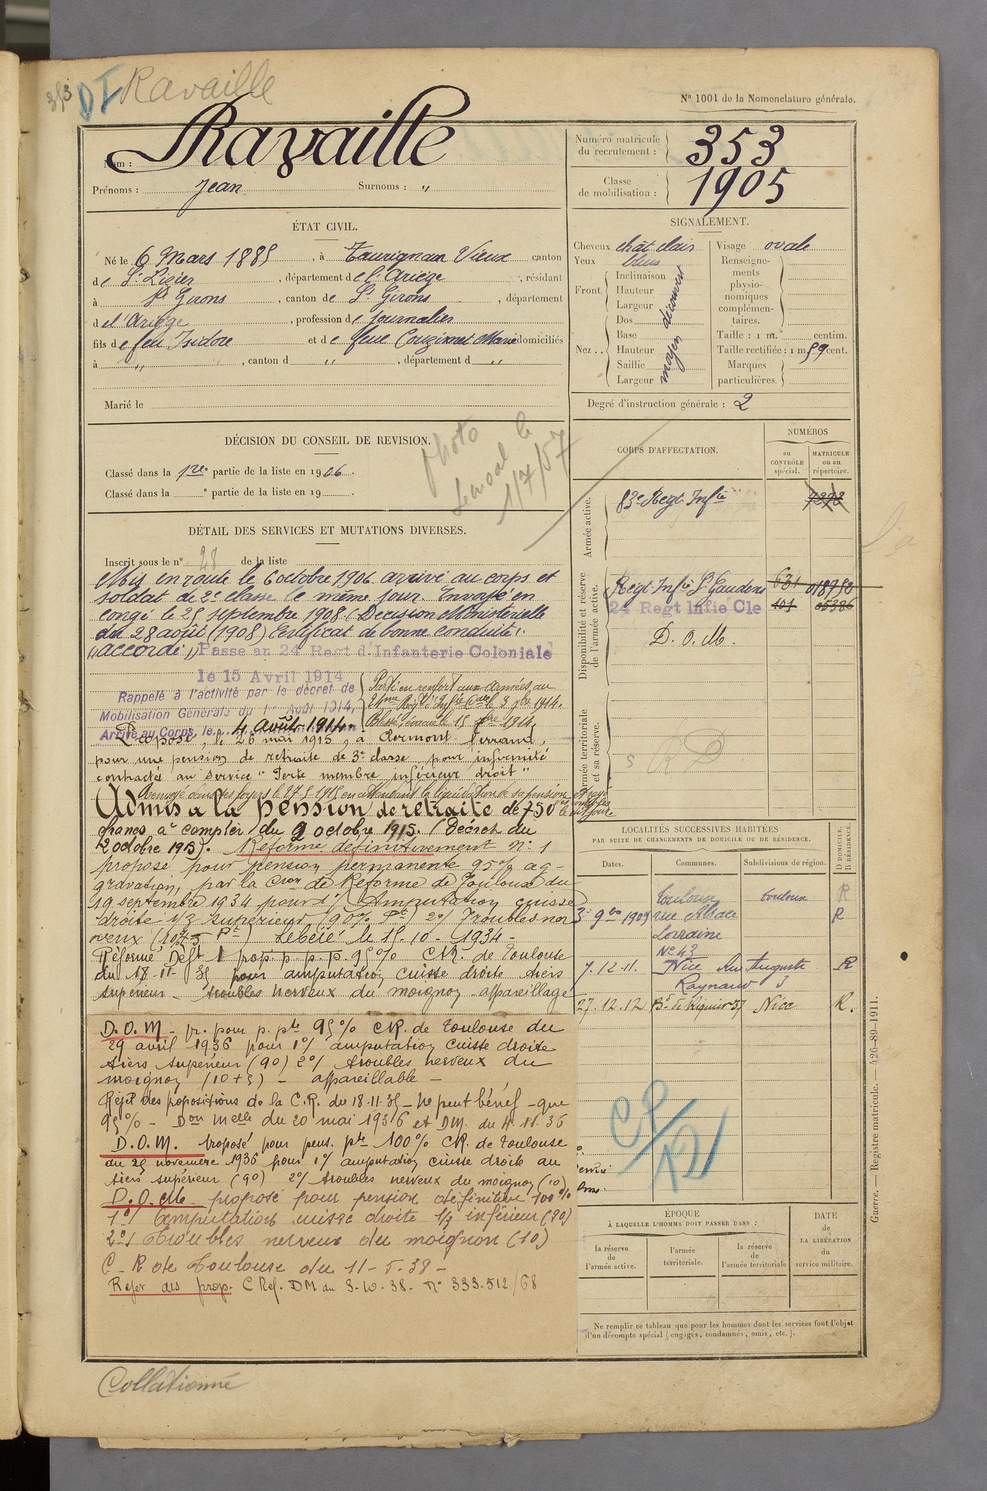 353 DI Ravaille
N° 1001 de la Nomenclature générale.
Nom : Ravaille
Prénoms : Jean Surnoms : "
Numéro matricule du recrutement : 353
Classe de mobilisation : 1905
ÉTAT CIVIL.
Né le 6 Mars 1885, à Taurignan Vieux canton
de St Lizier, département de l'Ariège, résidant
à St Girons, canton de St Girons, département
d el'Ariège, profession de journalier
fils de feu Isidore et de feue Couzinet Marie domiciliés
à ", canton d ", département d "
Marié le
SIGNALEMENT.
Cheveux chât clair
Yeux bleus
Front. Inclinaison Hauteur Largeur découvert
Nez.. Dos Base Hauteur Saillie Largeur moyen
Visage ovale
Renseignements physionomiques complémentaires.
Taille : 1 m. centim.
Taille rectifiée : 1 m 59 cent.
Marques particulières.
Degré d'instruction générale : 2
DÉCISION DU CONSEIL DE REVISION.
Classé dans la 1re partie de la liste en 1906.
Classé dans la ° partie de la liste en 19 .
Photo
le
1/7/57
DÉTAIL DES SERVICES ET MUTATIONS DIVERSES.
Inscrit sous le n° 28 de la liste
Mis en route le 6 octobre 1906 arrivé au corps et
soldat de 2e classe le même jour. Envoyé en
congé le 25 septembre 1908 (Décision Ministérielle
du 28 août 1908) Certificat de bonne conduite :
"accordé". Passe au 24 Regt d'Infanterie Coloniale
le 15 Avril 1914
Rappelé à l'activité par le décret de
Mobilisation Générale du 1er Août 1914,
Arrivé au Corps, le 4 Août 1914
Parti en renfort aux armées au
24me Régt d'Infie Cole le 3 9bre 1914.
Blessé évacué le 15 Xbre 1914
Proposé, le 26 mai 1915, à Clermont Ferrand,
pour une pension de retraite de 3e classe pour infirmité
contracté au service "Perte membre inférieur droit"
Renvoyé dans ses foyers le 27.5.1915 en attendant la liquidation de sa pension
Admis à la pension de retraite de 750
francs à compter du 9 octobre 1915. (Décret du
2 octobre 1915). Réformé définitivement n° 1
proposé pour pension permanente 95% ag-
gravation, par la Cion de Réforme de Toulouse du
19 septembre 1934 pour 1°/ Amputation cuisse
droite 1/3 supérieur (90% Pt) 2°/ Troubles ner
veux (10+5 Pt) Libéré le 15-10-1934 -
Réformé Déft 1 prop. p. p. p. 95% C.R. de Toulouse
du 18-11-35 pour amputation cuisse droite tiers
supérieur - troubles nerveux du moignon - appareillage
D.O.M - pr. pour p. pte 95% CR de Toulouse du
29 avril 1936 pour 1°/ amputation cuisse droite
tiers supérieur (90) 2°/ troubles nerveux du
moignon (10+5) - appareillable -
Rejet des propositions de la C.R. du 18-11-35 - Ne peut bénéf - que
95% - Don Melle du 20 mai 1936 et DM. du 4-11-36
D.O.M. proposé pour pens. pte 100% CR. de Toulouse
du 25 novembre 1936 pour 1°/ amputation cuisse droite au
tiers supérieur (90) 2°/ troubles nerveux du moignon (10)
D.O.M. proposé pour pension définitive 100%
1°/ amputation cuisse droite 1/3 inférieur (90)
2°/ troubles nerveux du moignon (10)
C-R de Toulouse du 11-5-38 -
Rejet des prop. C Ref. DM du 3-10-38. N° 333.512/68
Collationné
CORPS D'AFFECTATION.
NUMÉROS
au CONTRÔLE spécial.
MATRICULE ou au répertoire.
Armée active.
83e Regt Infie 7292
Disponibilité et réserve de l'armée active.
Regt Infie St Gaudens 631 018750
24 Regt Infie Cle 101 05386
D. O. M.
Armée territoriale et sa réserve.
LOCALITÉS SUCCESSIVES HABITÉES
PAR SUITE DE CHANGEMENTS DE DOMICILE OU DE RÉSIDENCE.
Dates. Communes. Subdivisions de région. D DOMICILE. R RÉSIDENCE.
Toulouse Toulouse R
3 9bre 1909 rue Alsace R
Lorraine
N° 43
7.12.11. Nice Rue Auguste R
Raynaud 3
27.12.12. Bd de Riquier 37 Nice R.
CP/121
ÉPOQUE
À LAQUELLE L'HOMME DOIT PASSER DANS :
DATE de LA LIBÉRATION du service militaire.
la réserve de l'armée active.
l'armée territoriale.
la réserve de l'armée territoriale
Ne remplir ce tableau que pour les hommes dont les services font l'objet
d'un décompte spécial (engagés, condamnés, omis, etc.).
Guerre. — Registre matricule. — 426-89-1911.